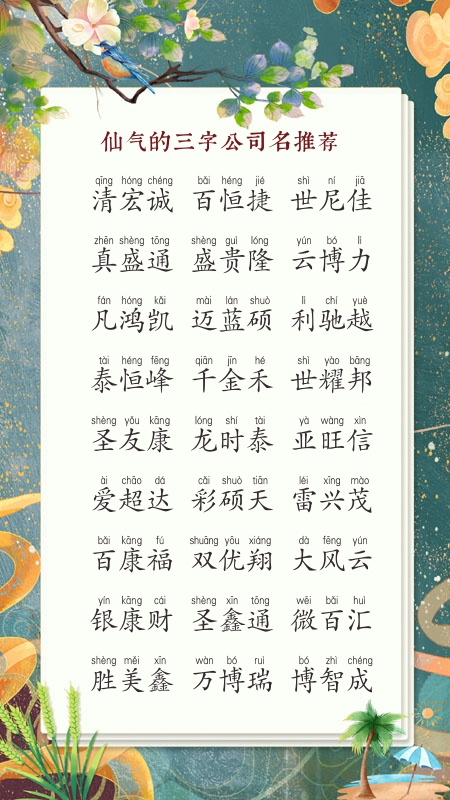 仙气的三字公司名推荐
qīng hóng chéng bǎi héng jié shì ní jiā
清宏诚 百恒捷 世尼佳
zhēn shèng tōng shèng guì lóng yún bó lì
真盛通 盛贵隆 云博力
fán hóng kǎi mài lán shuò lì chí yuè
凡鸿凯 迈蓝硕 利驰越
tài héng fēng qiān jīn hé shì yào bāng
泰恒峰 千金禾 世耀邦
shèng yǒu kāng lóng shí tài yà wàng xìn
圣友康 龙时泰 亚旺信
ài chāo dá cǎi shuò tiān léi xīng mào
爱超达 彩硕天 雷兴茂
bǎi kāng fú shuāng yōu xiáng dà fēng yún
百康福 双优翔 大风云
yín kāng cái shèng xīn tōng wēi bǎi huì
银康财 圣鑫通 微百汇
shèng měi xīn wàn bó ruì bó zhì chéng
胜美鑫 万博瑞 博智成